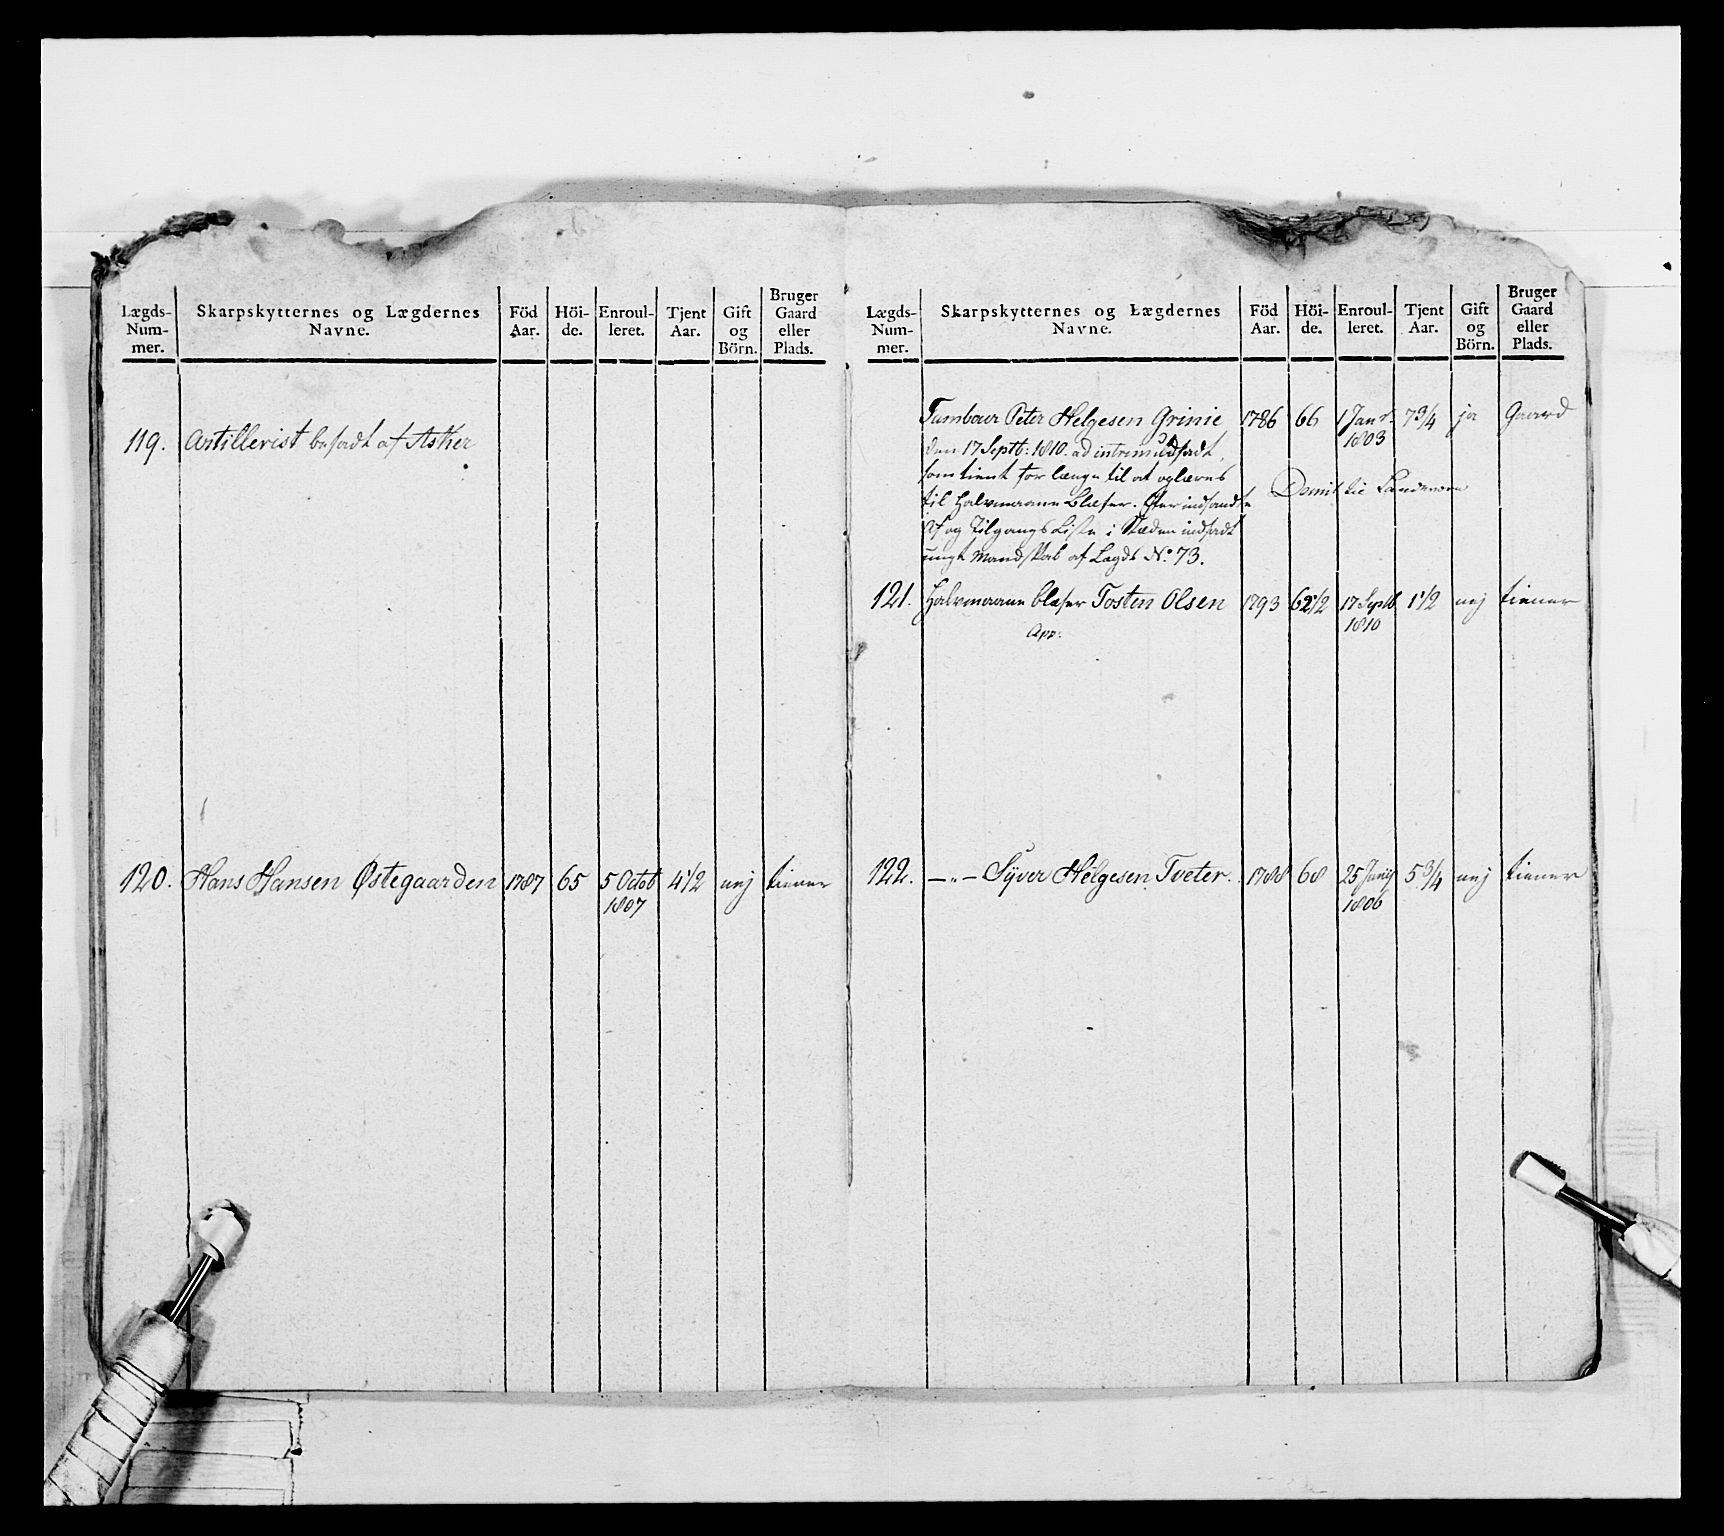 Lægds-Num-mer. Skarpskytternes og Lægdernes Navne. Föd Aar. Höi-de. Enroul-leret. Tjent Aar. Gift og Börn. Bruger Gaard eller Plads.
119. Artillerist besadt af Asker
120. Hans Hansen Østegaarden 1787 65 5 Octob 1807 4 1/2 nej tiener
Lægds-Num-mer. Skarpskytternes og Lægdernes Navne. Föd Aar. Höi-de. Enroul-leret. Tjent Aar. Gift og Börn. Bruger Gaard eller Plads.
Tambour Peter Helgesen Grinie 1786 66 1 Janr. 1803 7 3/4 ja Gaard
den 17 Septb: 1810. ad intrem udsadt,
som tient for længe til at oplæres
til Halvmaane blæser. Efter indsendte Demit til Landeværn
Af og Tilgangs Liste i Stæden indsadt
ungt Mandskab af Lægds No. 73.
121. Halvmaane blæser Tosten Olsen 1793 62 1/2 17 Septb 1810 1 1/2 nej tiener
122. — " — Syver Helgesen Tveter. 1788 68 25 Junij 1806 5 3/4 nej tiener